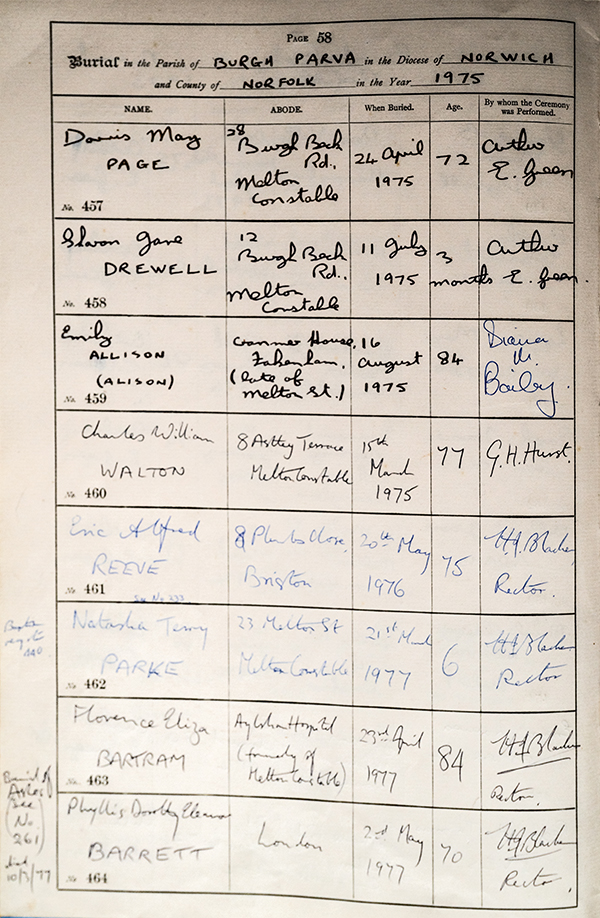 PAGE 58
Burial in the Parish of BURGH PARVA in the Diocese of NORWICH
and County of NORFOLK in the Year 1975
NAME. ABODE. When Buried. Age. By whom the Ceremony was Performed.
Dorris May
PAGE
No. 457
28
Burgh Beck
Rd.,
Melton
Constable
24 April
1975
72
Arthur
E. Green
Sharon Jane
DREWELL
No. 458
12
Burgh Beck
Rd.,
Melton
Constable
11 July
1975
3
months
Arthur
E. Green.
Emily
ALLISON
(ALISON)
No. 459
Cranmer House,
Fakenham.
(late of
Melton St.)
16
August
1975
84
Diana
M.
Bailey.
Charles William
WALTON
No. 460
8 Astley Terrace
Melton Constable
15th
March
1975
77
G. H. Hurst.
Eric Alfred
REEVE
No. 461
8
Close,
Briston
20th May
1976
75
Rector.
See No
Natasha Terry
PARKE
No. 462
23 Melton St
Melton Constable
21st March
1977
6
Rector
440
Florence Eliza
BARTRAM
No. 463
Aylsham Hospital
(formerly of
Melton Constable)
23rd April
1977
84
Rector.
Phyllis Dorothy Eleanor
BARRETT
No. 464
London
2nd May
1977
70
Rector.
Burial of
Ashes
(See
No
261)
died
10/3/77